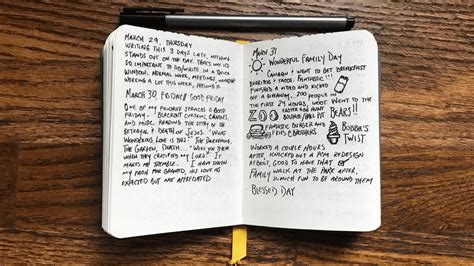 MARCH 29, THURSDAY
WRITING THIS 3 DAYS LATE, NOTHING
STANDS OUT ON THE DAY. THAT'S WHY IT'S
SO IMPORTANT TO DO/WRITE IN A QUICK
WINDOW. NORMAL WORK, MEETINGS, WORKOUT
WORKING A LOT THIS WEEK, FEELING IT
MARCH 30, FRIDAY/GOOD FRIDAY
ONE OF MY FAVORITE SERVICES IS GOOD
FRIDAY. BLACKOUT CURTAINS, CANDLES,
AND MUSIC. READING THE STORY OF THE
BETRAYAL & DEATH OF JESUS. "WHAT
WONDROUS LOVE IS THIS" THE
THE GARDEN, DEATH... "WERE YOU THERE
WHEN THEY CRUCIFIED MY LORD? IT
MAKES ME TREMBLE... I HAVE TAKEN
MY FAITH FOR GRANTED, HIS LOVE AS
EXPECTED BUT NOT APPRECIATED.
MARCH 31
WONDERFUL FAMILY DAY
CANADA & WENT TO GET BREAKFAST
BURRITOS & TACOS. FANTASTIC!!!
FINISHED A VIDEO AND KICKED
OFF A GIVEAWAY. 200 PEOPLE IN
THE FIRST 24 HOURS, WOOT WENT TO THE
ZOO EGG HUNT BEARS!!
BOUNCE/BALL PIT
FANTASTIC BURGER AND BOBBIE'S
FRIES @ BURGHERS TWIST
WORKED A COUPLE HOURS
AFTER, KNOCKED OUT A PEN REDESIGN
REBOOT, GOOD TO HAVE THAT
FAMILY WALK AT THE PARK AFTER,
SUCH FUN TO BE AROUND THEM
BLESSED DAY